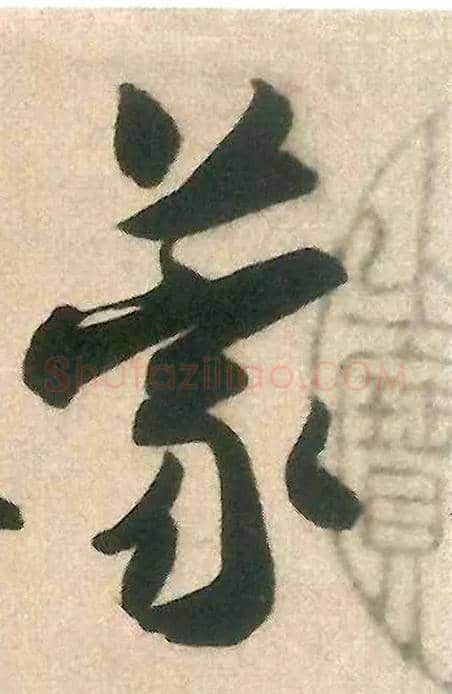 蒙
Shufaziliao.COM